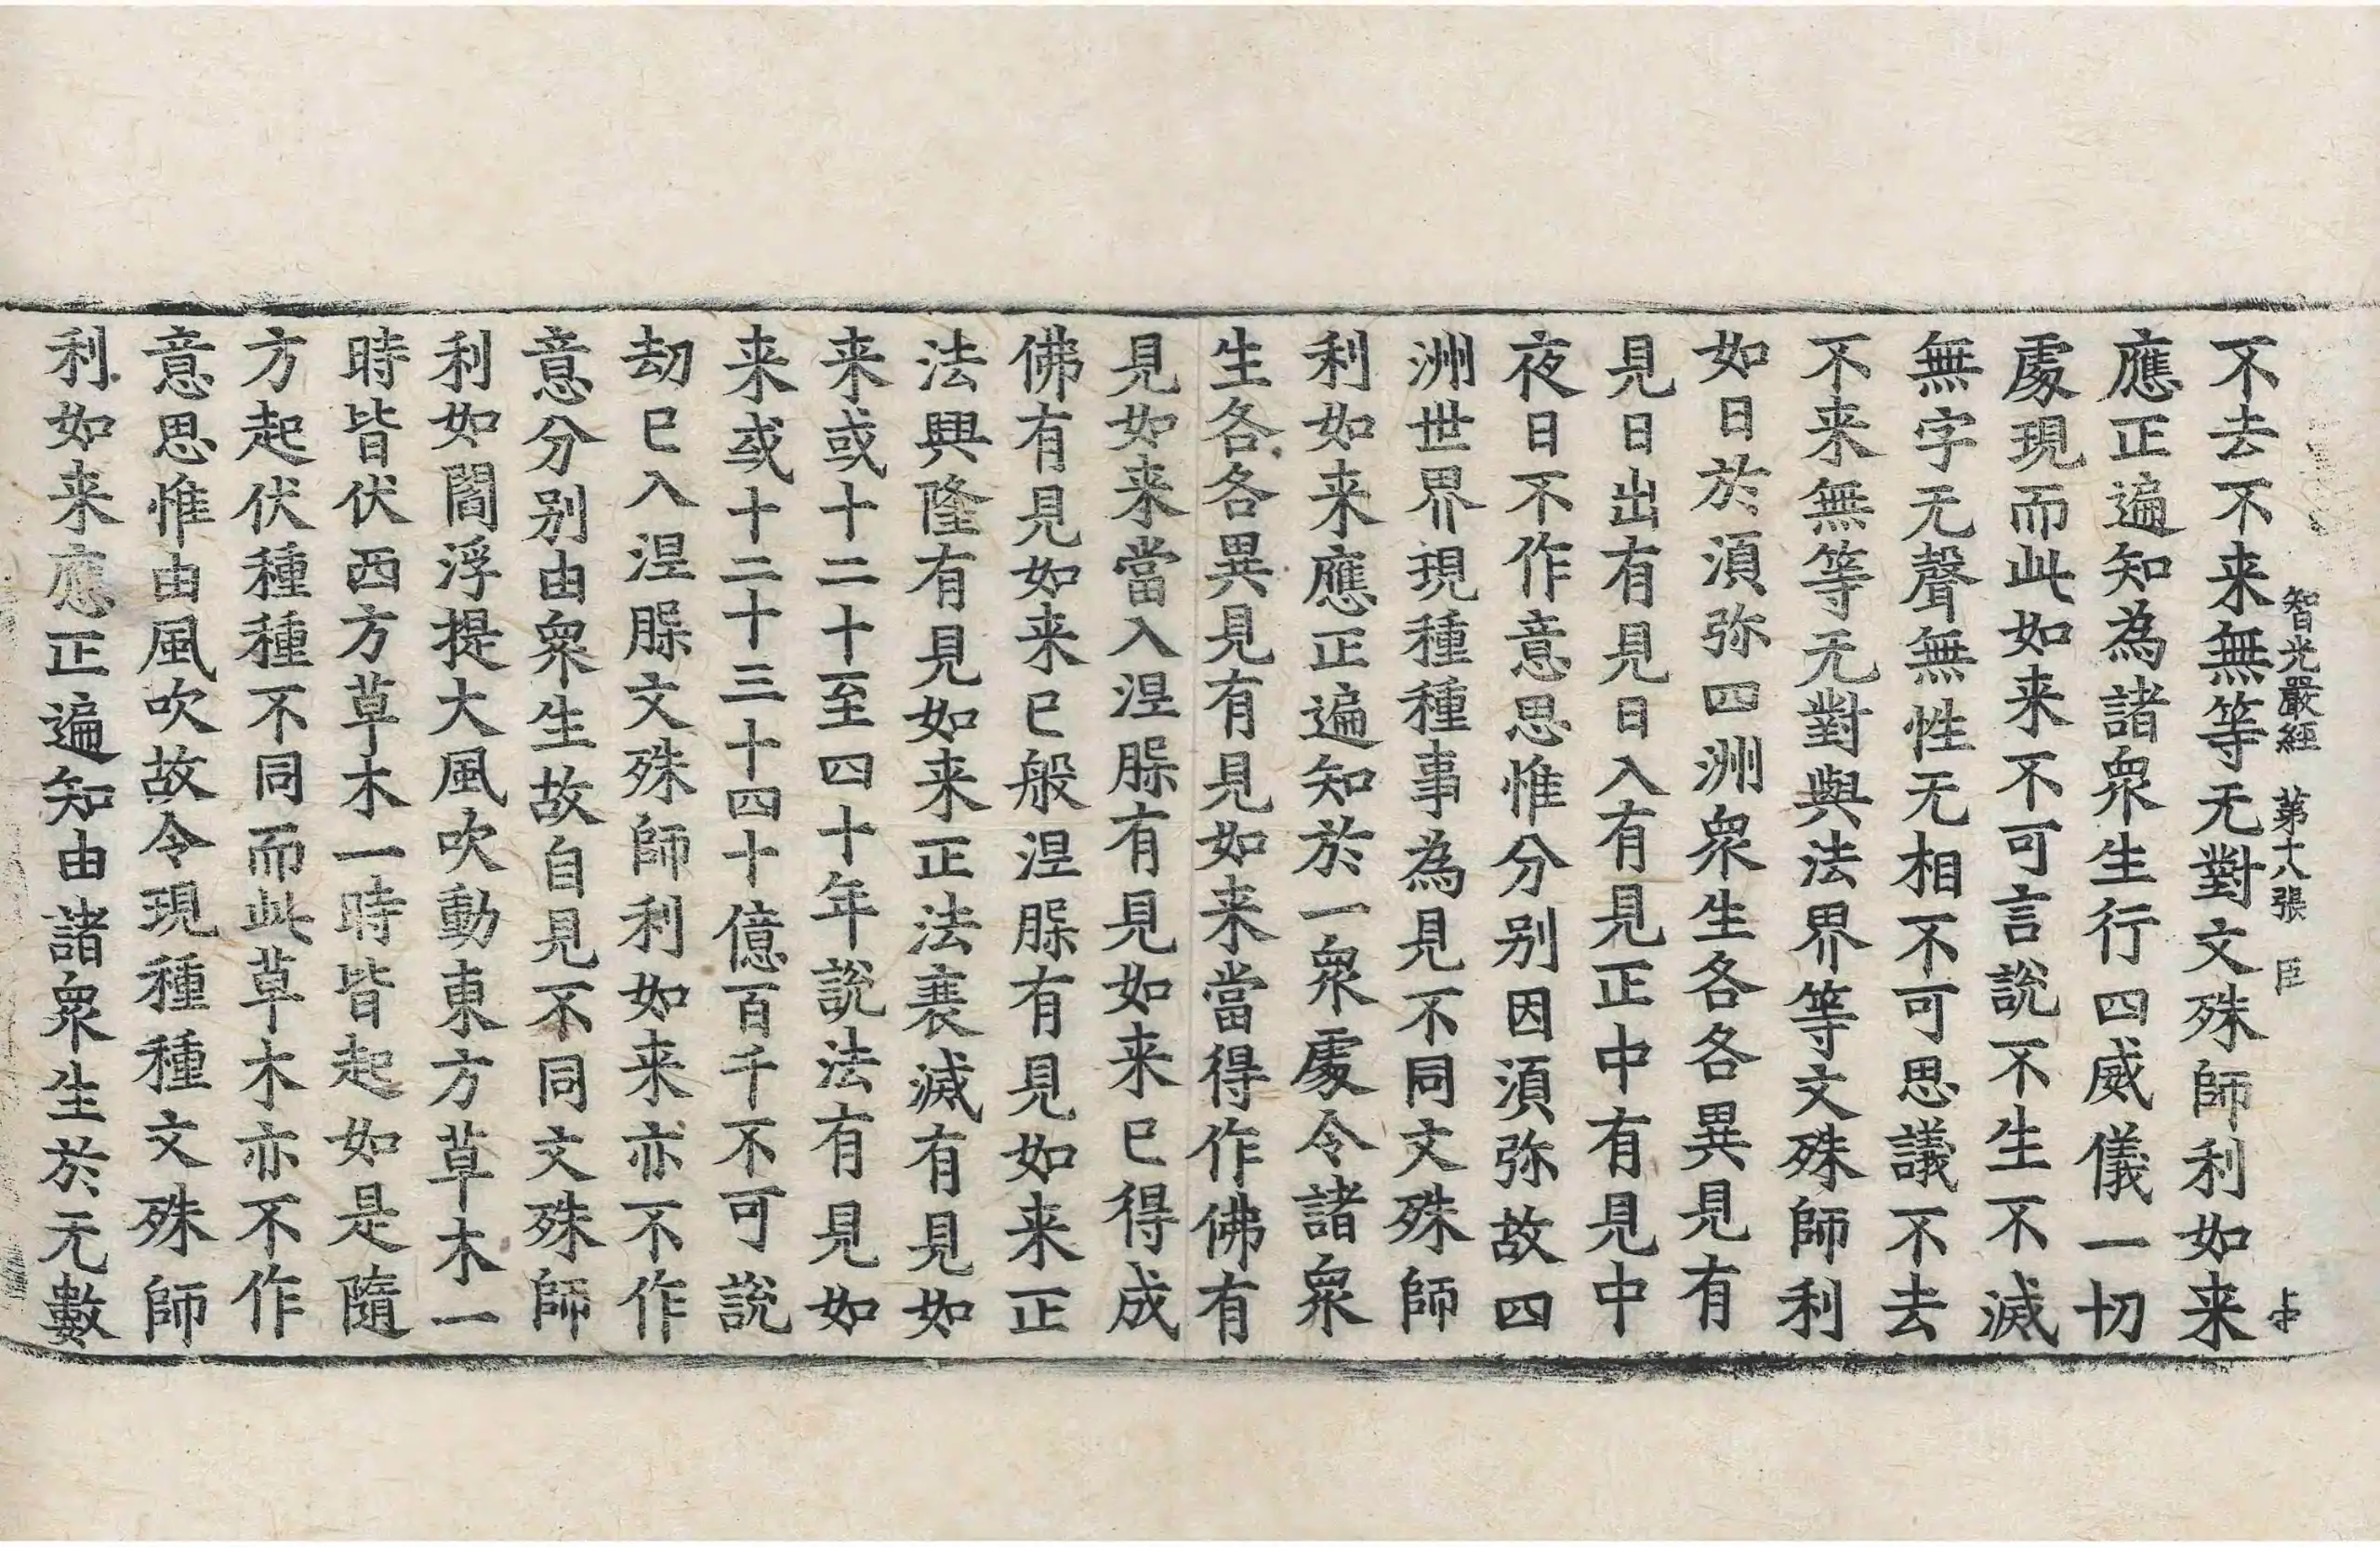 智光嚴經 第十八張 臣
不去不来無等无對文殊師利如来
應正遍知為諸衆生行四威儀一切
處現而此如来不可言說不生不滅
無字无聲無性无相不可思議不去
不来無等无對與法界等文殊師利
如日於須弥四洲衆生各各異見有
見日出有見日入有見正中有見中
夜日不作意思惟分別因須弥故四
洲世界現種種事為見不同文殊師
利如来應正遍知於一衆處令諸衆
生各各異見有見如来當得作佛有
見如来當入涅槃有見如来已得成
佛有見如来已般涅槃有見如来正
法興隆有見如来正法衰滅有見如
来或十二十至四十年說法有見如
来或十二十三十四十億百千不可說
劫已入涅槃文殊師利如来亦不作
意分別由衆生故自見不同文殊師
利如閻浮提大風吹動東方草木一
時皆伏西方草木一時皆起如是隨
方起伏種種不同而此草木亦不作
意思惟由風吹故令現種種文殊師
利如来應正遍知由諸衆生於无數